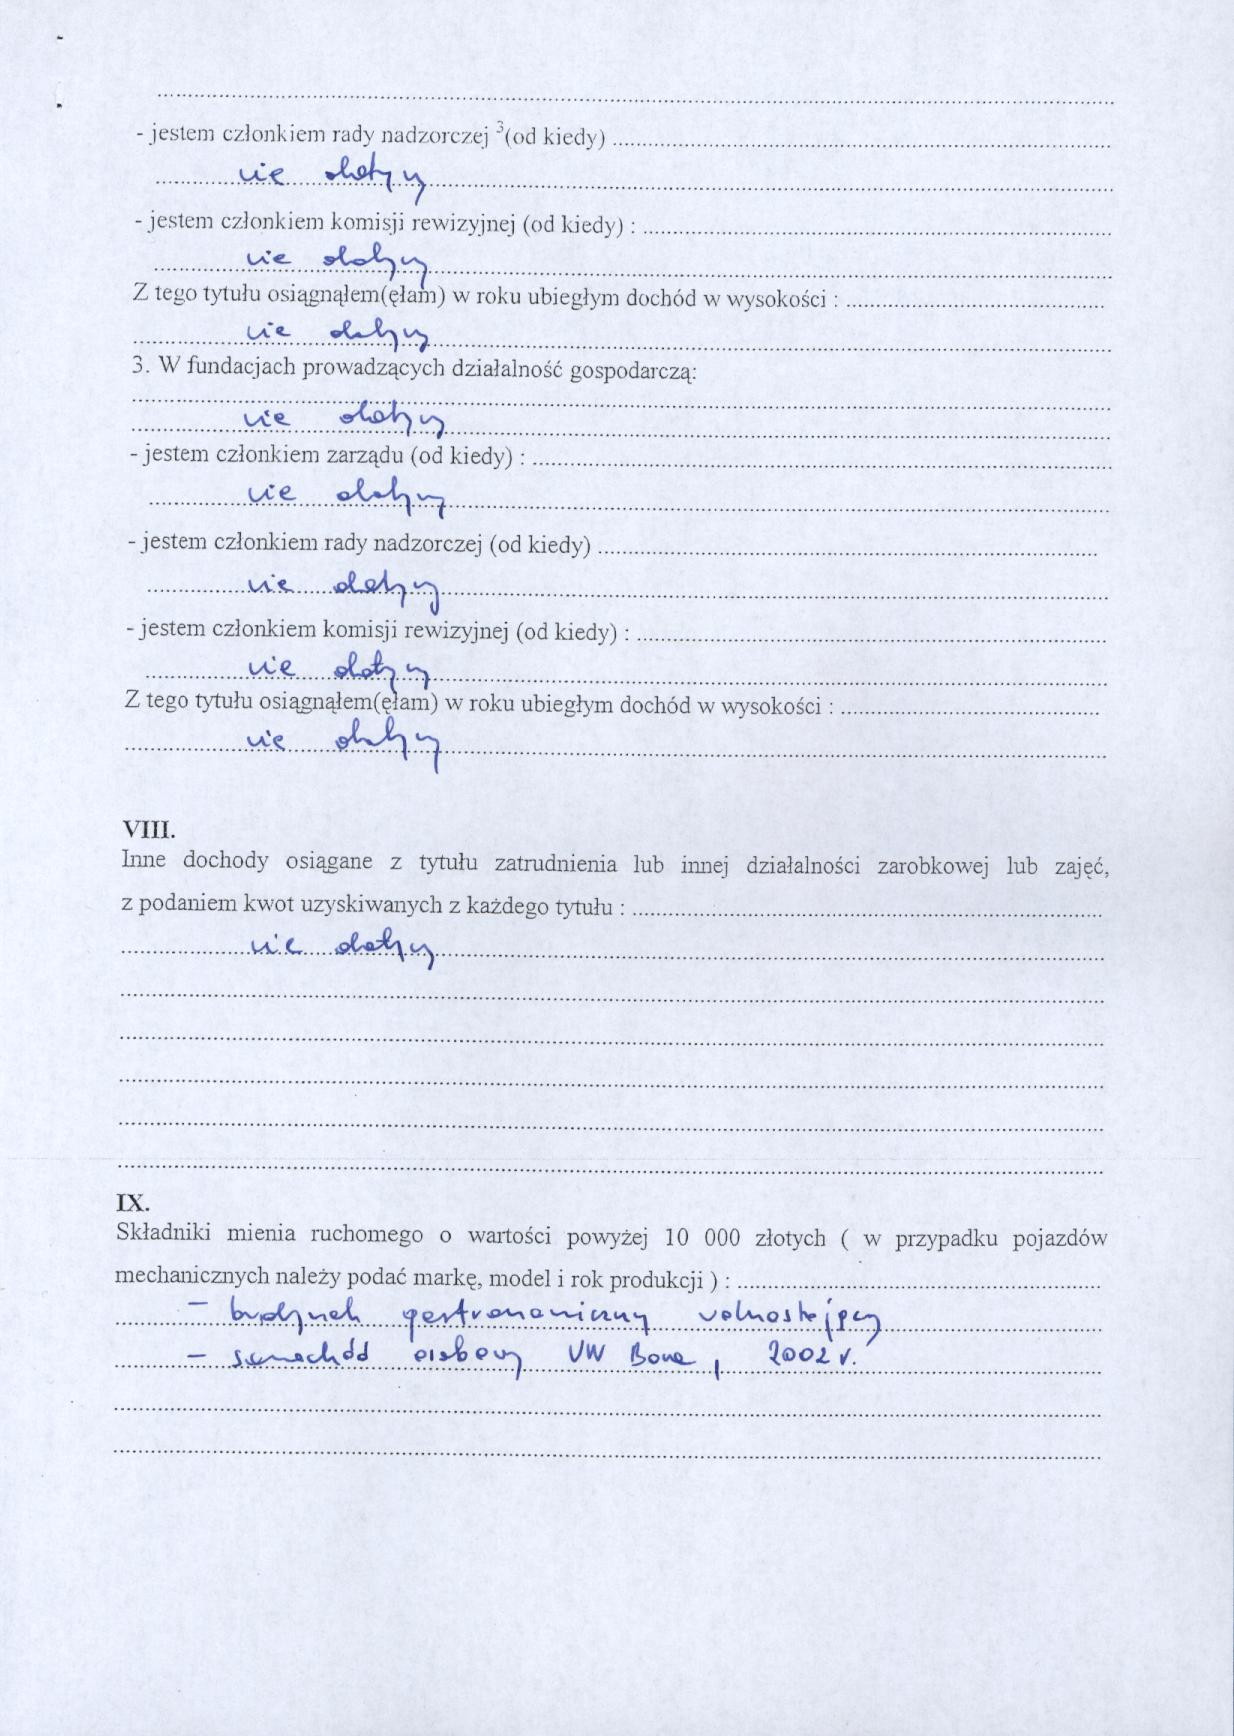 - jestem członkiem rady nadzorczej ³(od kiedy) ..........
nie dotyczy
- jestem członkiem komisji rewizyjnej (od kiedy) : ..........
nie dotyczy
Z tego tytułu osiągnąłem(ęłam) w roku ubiegłym dochód w wysokości : ..........
nie dotyczy
3. W fundacjach prowadzących działalność gospodarczą:
nie dotyczy
- jestem członkiem zarządu (od kiedy) : ..........
nie dotyczy
- jestem członkiem rady nadzorczej (od kiedy) ..........
nie dotyczy
- jestem członkiem komisji rewizyjnej (od kiedy) : ..........
nie dotyczy
Z tego tytułu osiągnąłem(ęłam) w roku ubiegłym dochód w wysokości : ..........
nie dotyczy
VIII.
Inne dochody osiągane z tytułu zatrudnienia lub innej działalności zarobkowej lub zajęć,
z podaniem kwot uzyskiwanych z każdego tytułu : ..........
nie dotyczy
IX.
Składniki mienia ruchomego o wartości powyżej 10 000 złotych ( w przypadku pojazdów
mechanicznych należy podać markę, model i rok produkcji ) : ..........
- budynek gastronomiczny wolnostojący
- samochód osobowy VW Bora, 2002 r.